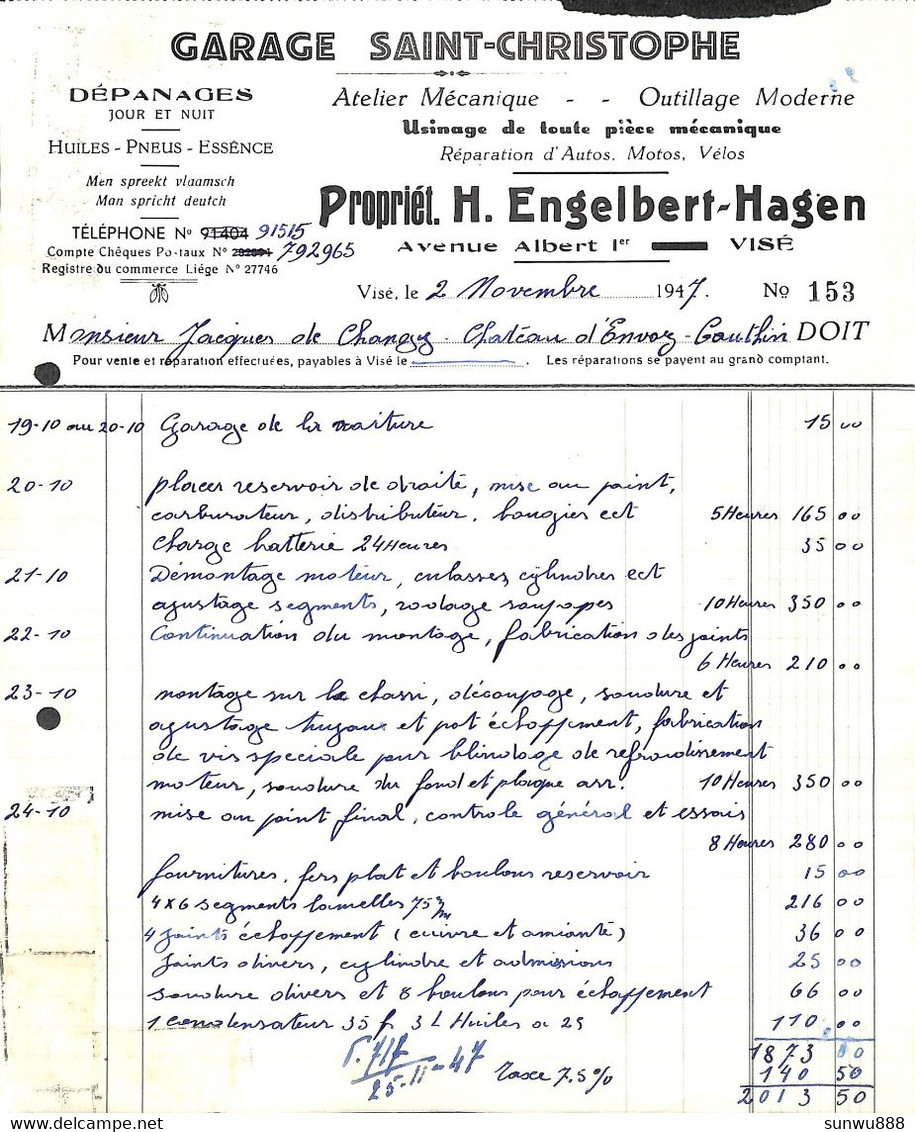 GARAGE SAINT-CHRISTOPHE
DÉPANAGES
JOUR ET NUIT
HUILES - PNEUS - ESSÊNCE
Men spreekt vlaamsch
Man spricht deutch
TÉLÉPHONE No 91404 91515
Compte Chêques Postaux No 792965
Registre du commerce Liége No 27746
Atelier Mécanique - - Outillage Moderne
Usinage de toute pièce mécanique
Réparation d'Autos, Motos, Vélos
Propriét. H. Engelbert-Hagen
Avenue Albert Ier VISÉ
Visé, le 2 Novembre 1947. No 153
Monsieur Jacques de Changy - Chatéau d'Envoz - Couthin DOIT
Pour vente et réparation effectuées, payables à Visé le . Les réparations se payent au grand comptant.
19-10 au 20-10 Garage de la voiture 15 00
20-10 placer reservoir de droite, mise au point,
carburateur, distributeur, bougies ect 5 Heures 165 00
charge batterie 24 Heures 35 00
21-10 Démontage moteur, culasses, cylindres ect
agustage segments, rodage soupapes 10 Heures 350 00
22-10 Continuation du montage, fabrication des joints
6 Heures 210 00
23-10 montage sur le chassi, découpage, soudure et
agustage tuyaux et pot échoffment, fabrication
de vis speciale pour blindage de refroidissement
moteur, soudure du fond et plaque arr. 10 Heures 350 00
24-10 mise au point final, controle général et essais
8 Heures 280 00
fournitures, fers plat et boulons reservoir 15 00
4x6 segments lamelles 75 m/m 216 00
4 Joints échoffement (cuivre et amiante) 36 00
Joints divers, cylindre et admissions 25 00
soudure divers et 8 boulons pour échoffement 66 00
1 condensateur 35 f 3 L Huiles a 25 110 00
1873 00
F. 717
25-11-47 Taxe 7.5% 140 50
2013 50
sunwu888